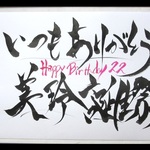 いつもありがとう
Happy Birthday 22
美玲